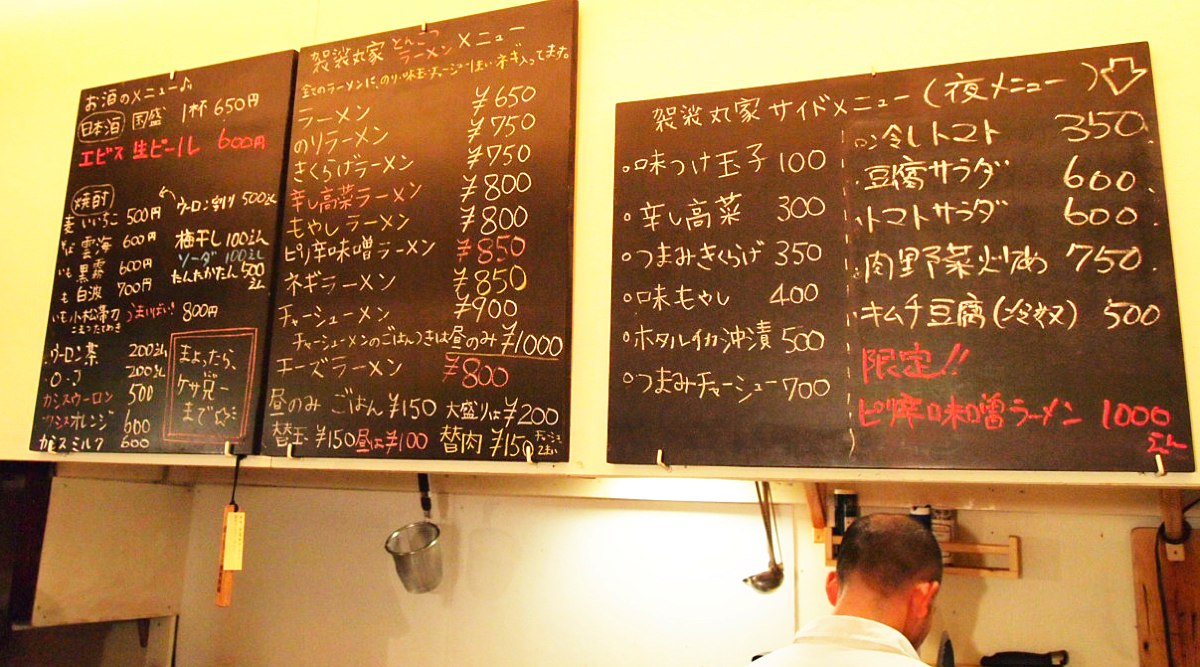 お酒のメニュー♪
日本酒 国盛 1杯 650円
エビス 生ビール 600円
焼酎
麦 いいちこ 500円
そば 雲海 600円
いも 黒霧 600円
も 白波 700円
いも 小松帯刀 うまいばい!! 800円
ウーロン割り 500えん
梅干し 100えん
ソーダ 100えん
たんたかたん 500えん
・ウーロン茶 200えん
・O.J 200えん
カシスウーロン 500
カシスオレンジ 600
カシスミルク 600
まよったら、
ケサ兄ー
まで☆ミ
袈裟丸家 とんこつラーメン メニュー
全てのラーメンに、のり、味玉、チャーシュー、ほい、ネギ入ってます。
ラーメン ¥650
のりラーメン ¥750
きくらげラーメン ¥750
辛し高菜ラーメン ¥800
もやしラーメン ¥800
ピリ辛味噌ラーメン ¥850
ネギラーメン ¥850
チャーシューメン ¥900
チャーシューメンのごはんつきは昼のみ ¥1000
チーズラーメン ¥800
昼のみ ごはん ¥150 大盛りは ¥200
替玉 ¥150 昼は¥100 替肉 ¥150 チャーシュー2まい
袈裟丸家 サイドメニュー (夜メニュー)
・味つけ玉子 100
・辛し高菜 300
・つまみきくらげ 350
・味もやし 400
・ホタルイカ沖漬 500
・つまみチャーシュー 700
・冷しトマト 350.
・豆腐サラダ 600.
・トマトサラダ 600.
・肉野菜炒め 750.
・キムチ豆腐 500
限定!!
ピリ辛味噌ラーメン 1000えん